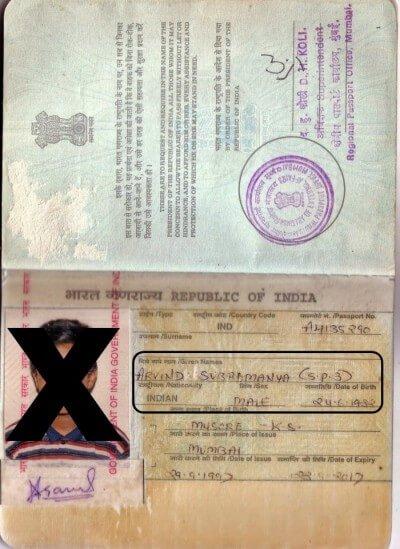 इसके द्वारा, भारत गणराज्य के राष्ट्रपति के नाम पर, उन सब से जिनका
इस बात से सरोकार हो, यह प्रार्थना एवं अपेक्षा की जाती है कि वे वाहक को बिना रोक-टोक,
आज़ादी से आने-जाने दें, और उसे हर तरह की ऐसी सहायता और सुरक्षा प्रदान करें
जिसकी उसे आवश्यकता हो।
THESE ARE TO REQUEST AND REQUIRE IN THE NAME OF THE
PRESIDENT OF THE REPUBLIC OF INDIA ALL THOSE WHOM IT MAY
CONCERN TO ALLOW THE BEARER TO PASS FREELY WITHOUT LET OR
HINDRANCE, AND TO AFFORD HIM OR HER, EVERY ASSISTANCE AND
PROTECTION OF WHICH HE OR SHE MAY STAND IN NEED.
भारत गणराज्य के राष्ट्रपति के आदेश से दिया गया
BY ORDER OF THE PRESIDENT OF THE
REPUBLIC OF INDIA
KOLI.
Superintendent
Regional Passport Office, Mumbai.
भारत गणराज्य REPUBLIC OF INDIA
टाईप /Type राष्ट्रीय कोड /Country Code पासपोर्ट नं. /Passport No.
IND A4135290
/Surname
दिये गये नाम /Given Names
ARVIND SUBRAMANYA (S.P.3)
राष्ट्रीयता /Nationality लिंग /Sex जन्मतिथि /Date of Birth
INDIAN MALE
/Place of Birth
MYSORE - K.S.
जारी करने का स्थान /Place of Issue
MUMBAI
जारी करने की तिथि /Date of Issue समाप्ति की तिथि /Date of Expiry